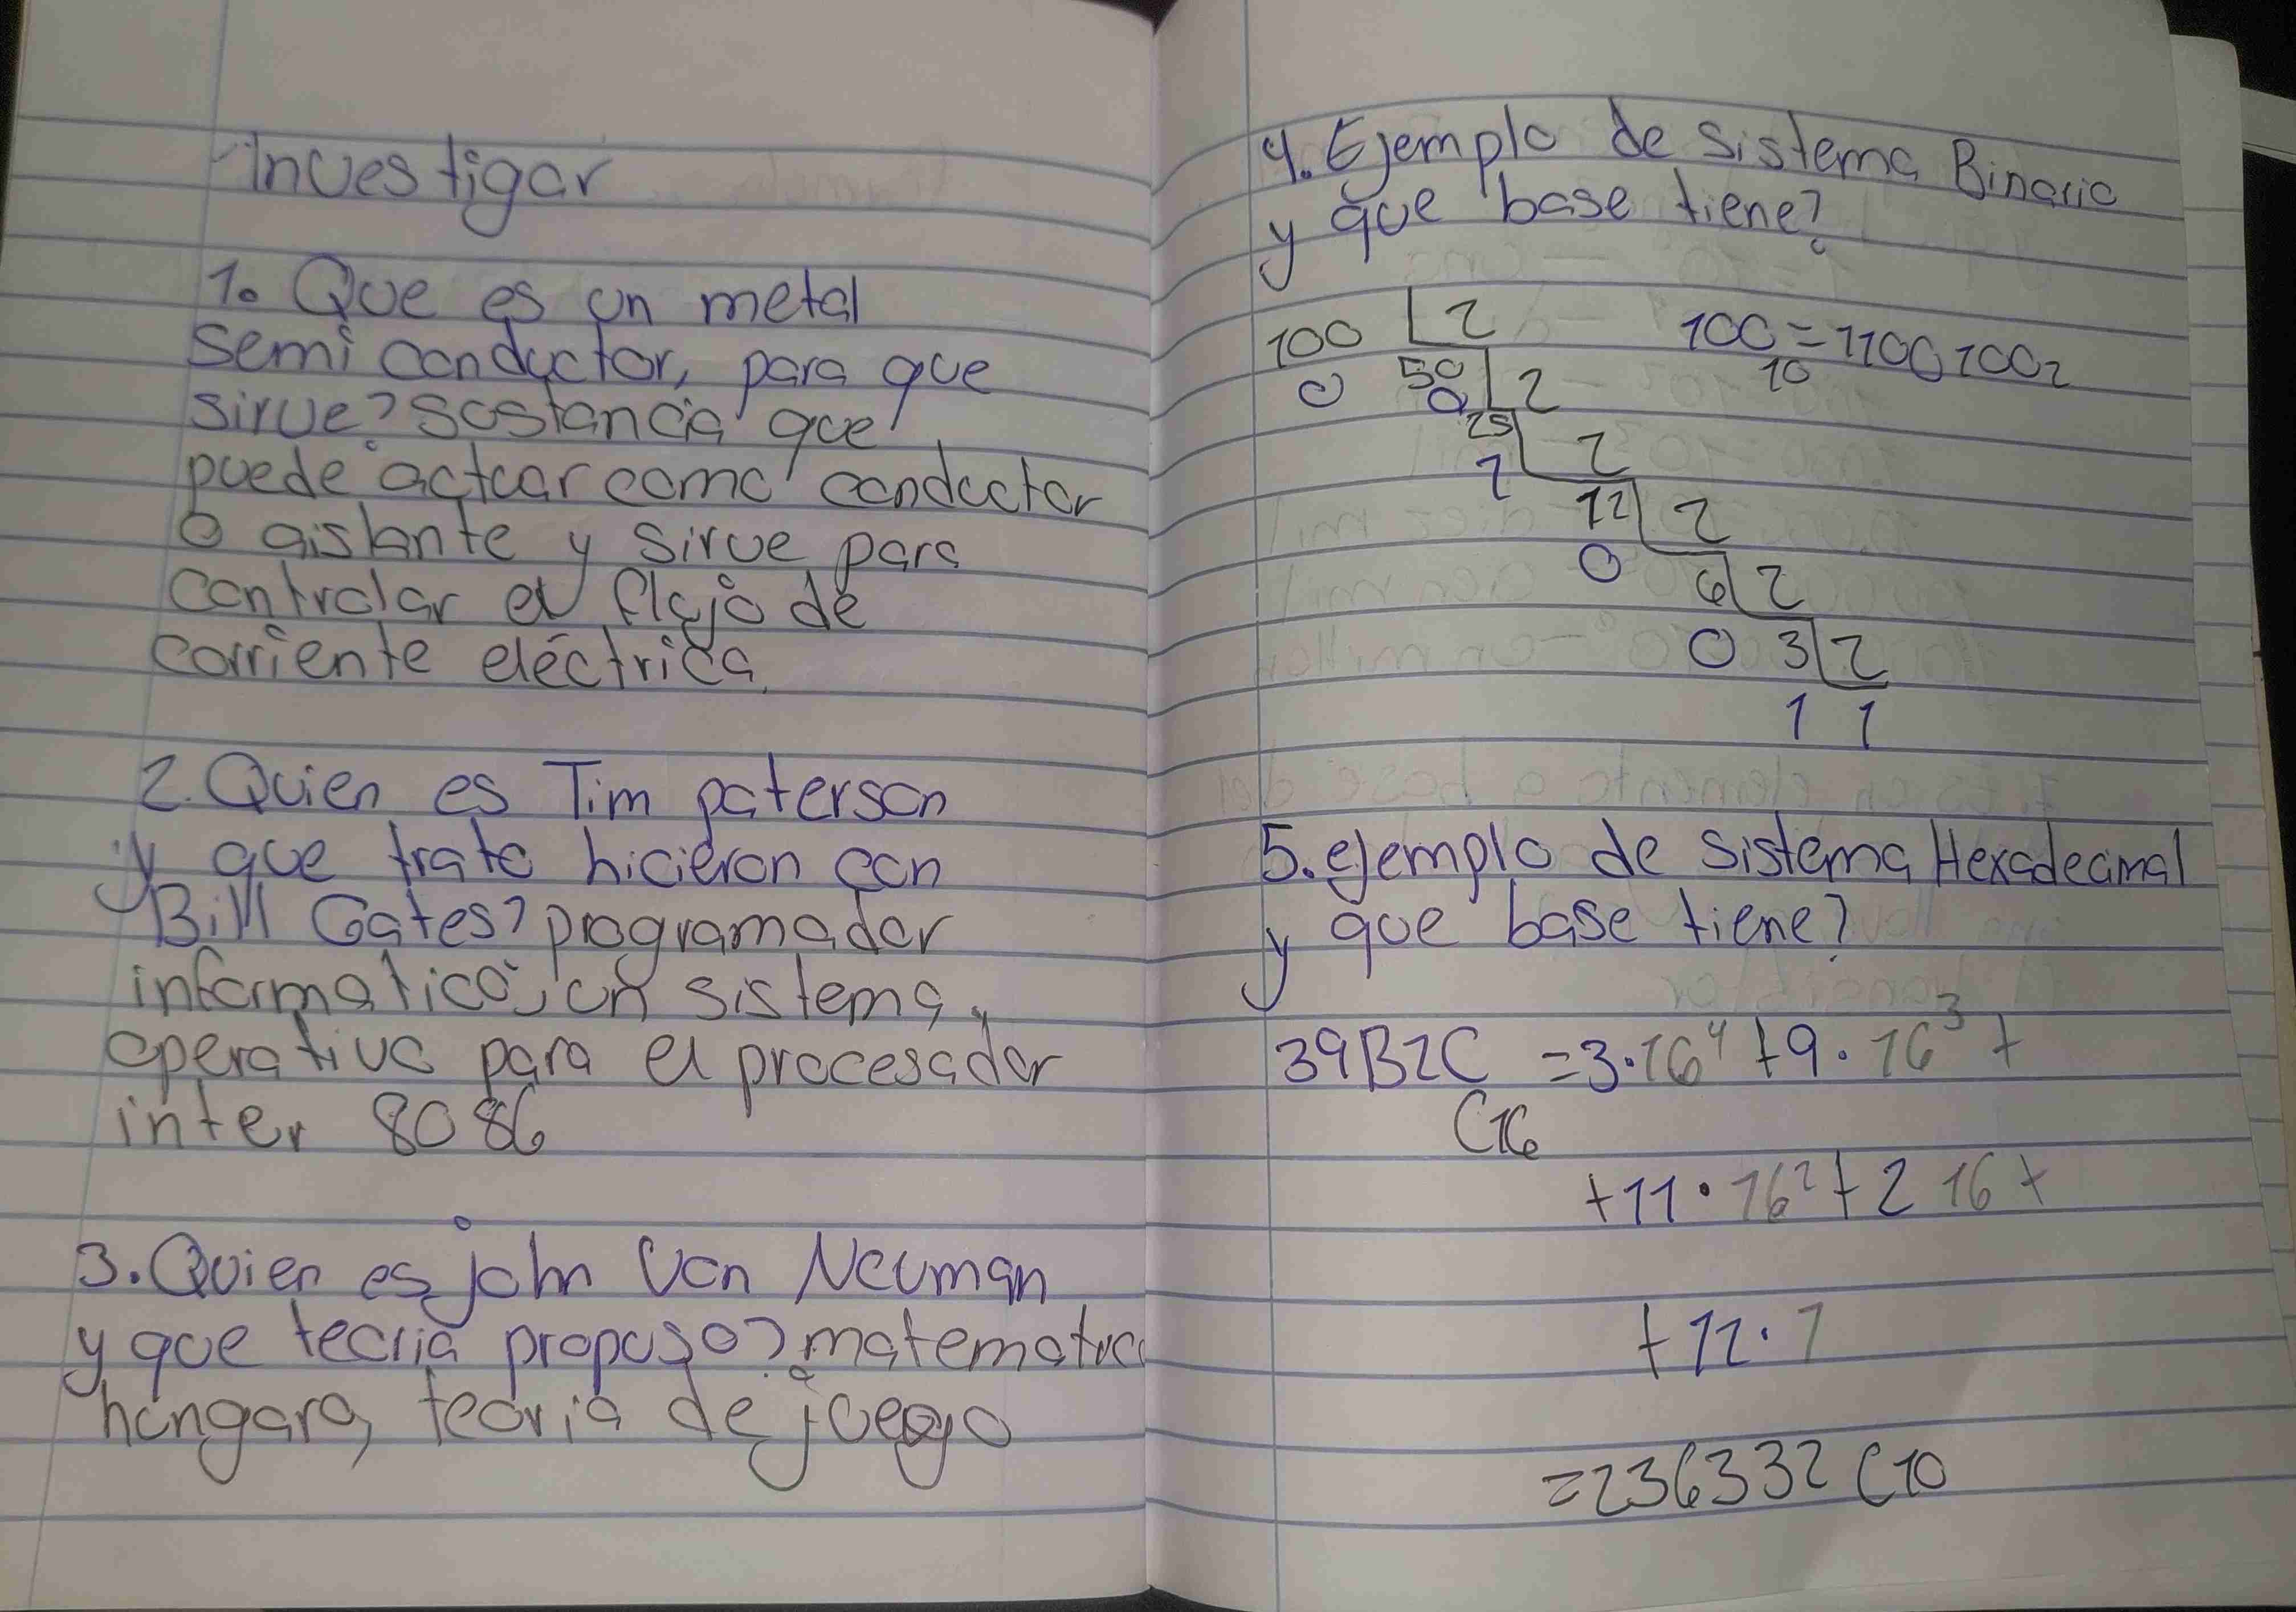 Investigar
1. Que es un metal
semi conductor, para que
sirve? sustancia que
puede actuar como conductor
o aislante y sirve para
controlar el flujo de
corriente eléctrica.
2. Quien es Tim paterson
y que trato hicieron con
Bill Gates? programador
informatico, un sistema
operativo para el procesador
inter 8086
3. Quien es john Von Neuman
y que teoria propuso? matematico
hungaro, teoria de juego
4. Ejemplo de sistema Binario
y que base tiene?
100 2 100 = 11001002
0 50 2 10
0 25 2
1 12 2
0 6 2
0 3 2
1 1
5. ejemplo de sistema Hexadecimal
y que base tiene?
39B2C = 3·16⁴ + 9·16³ +
(16
+11·16² + 2 16 +
+12·1
=236332 (10